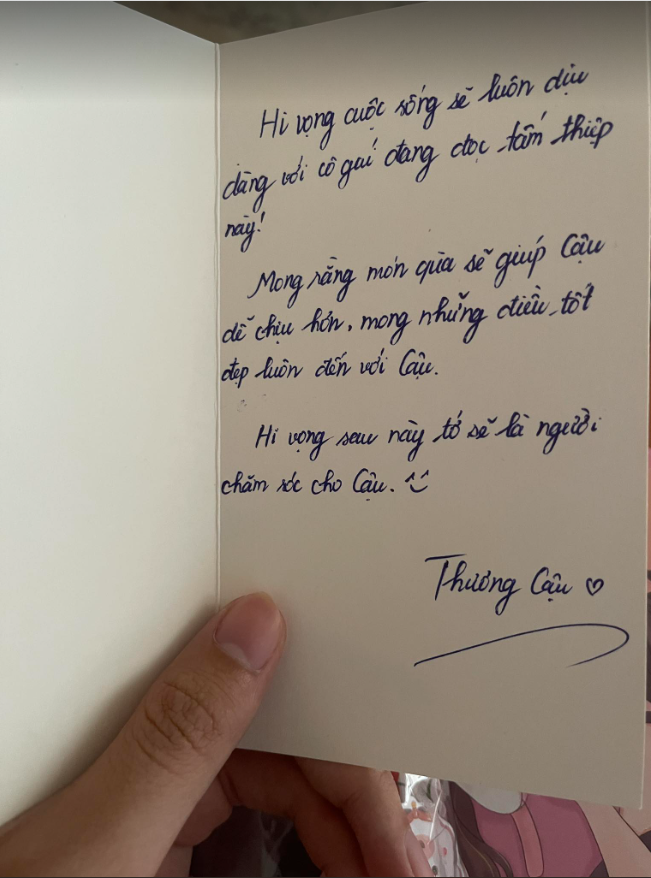 Hi vọng cuộc sống sẽ luôn dịu
dàng với cô gái đang đọc tấm thiệp
này!
Mong rằng món qùa sẽ giúp Cậu
dễ chịu hơn, mong những điều tốt
đẹp luôn đến với Cậu.
Hi vọng sau này tớ sẽ là người
chăm sóc cho Cậu. ^^
Thương Cậu ♡